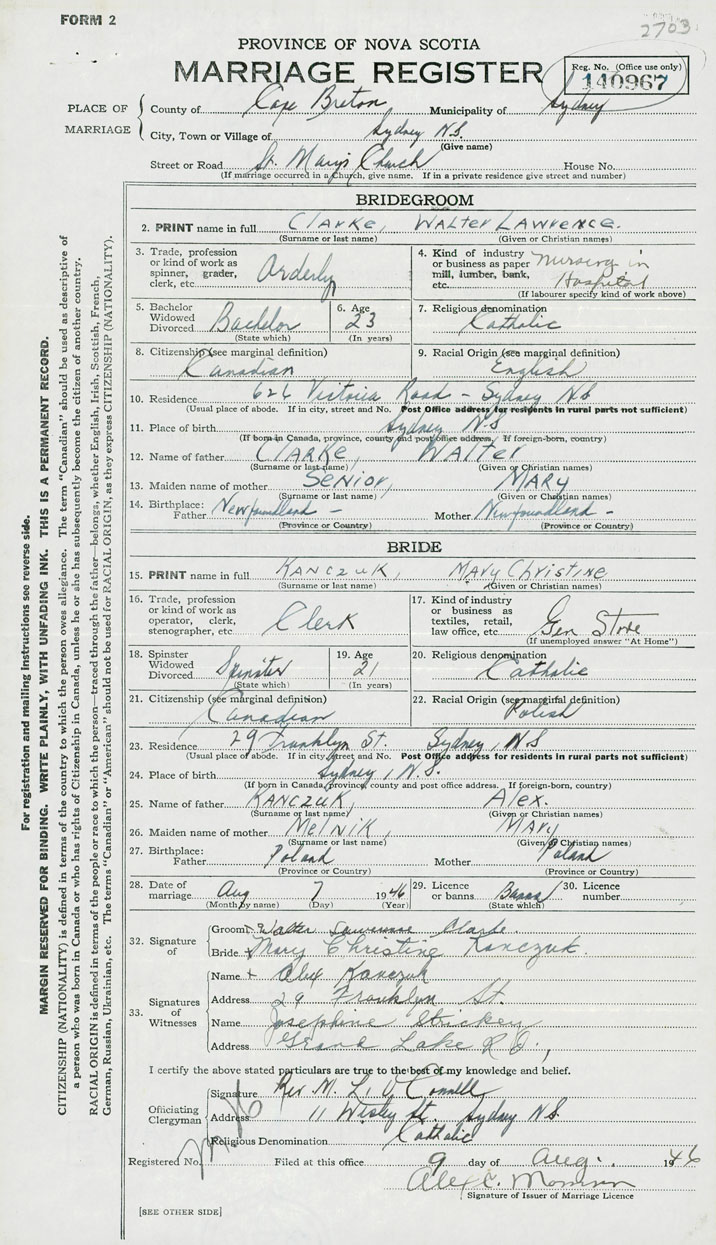 FORM 2
2703
PROVINCE OF NOVA SCOTIA
MARRIAGE REGISTER
Reg. No. (Office use only)
140967
PLACE OF MARRIAGE
County of Cape Breton Municipality of Sydney
City, Town or Village of Sydney N.S.
(Give name)
Street or Road St. Mary's Church House No.
(If marriage occurred in a Church, give name. If in a private residence give street and number)
BRIDEGROOM
2. PRINT name in full CLARKE, WALTER LAWRENCE.
(Surname or last name) (Given or Christian names)
3. Trade, profession or kind of work as spinner, grader, clerk, etc. Orderly
4. Kind of industry or business as paper mill, lumber, bank, etc. Nursing in Hospital
(If labourer specify kind of work above)
5. Bachelor Widowed Divorced Bachelor
(State which)
6. Age 23
(In years)
7. Religious denomination
Catholic
8. Citizenship (see marginal definition)
Canadian
9. Racial Origin (see marginal definition)
English
10. Residence 626 Victoria Road - Sydney NS
(Usual place of abode. If in city, street and No. Post Office address for residents in rural parts not sufficient)
11. Place of birth Sydney N.S
(If born in Canada, province, county and post office address. If foreign-born, country)
12. Name of father CLARKE, WALTER
(Surname or last name) (Given or Christian names)
13. Maiden name of mother SENIOR, MARY
(Surname or last name) (Given or Christian names)
14. Birthplace: Father Newfoundland - Mother Newfoundland -
(Province or Country) (Province or Country)
BRIDE
15. PRINT name in full KANCZUK, MARY CHRISTINE
(Surname or last name) (Given or Christian names)
16. Trade, profession or kind of work as operator, clerk, stenographer, etc. Clerk
17. Kind of industry or business as textiles, retail, law office, etc. Gen Store
(If unemployed answer "At Home")
18. Spinster Widowed Divorced Spinster
(State which)
19. Age 21
(In years)
20. Religious denomination
Catholic
21. Citizenship (see marginal definition)
Canadian
22. Racial Origin (see marginal definition)
Polish
23. Residence 29 Franklyn St. Sydney, N.S
(Usual place of abode. If in city, street and No. Post Office address for residents in rural parts not sufficient)
24. Place of birth Sydney, N.S.
(If born in Canada, province, county and post office address. If foreign-born, country)
25. Name of father KANCZUK, Alex.
(Surname or last name) (Given or Christian names)
26. Maiden name of mother MELNIK, MARY
(Surname or last name) (Given or Christian names)
27. Birthplace: Father Poland Mother Poland
(Province or Country) (Province or Country)
28. Date of marriage Aug 7 1946
(Month by name) (Day) (Year)
29. Licence or banns Banns
(State which)
30. Licence number
32. Signature of
Groom Walter Lawrence Clarke
Bride Mary Christine Kanczuk.
33. Signatures of Witnesses
Name + Alex Kanczuk
Address 29 Franklyn St.
Name Josephine Strickey
Address Grand Lake Rd.,
I certify the above stated particulars are true to the best of my knowledge and belief.
Officiating Clergyman
Signature Rev M. L. O'Connell
Address 11 Wesley St. Sydney N.S
Religious Denomination Catholic
Registered No. Filed at this office 9 day of Aug. 1946
Alex C.
Signature of Issuer of Marriage Licence
[SEE OTHER SIDE]
For registration and mailing instructions see reverse side.
MARGIN RESERVED FOR BINDING. WRITE PLAINLY, WITH UNFADING INK. THIS IS A PERMANENT RECORD.
CITIZENSHIP (NATIONALITY) is defined in terms of the country to which the person owes allegiance. The term "Canadian" should be used as descriptive of
a person who was born in Canada or who has rights of Citizenship in Canada, unless he or she has subsequently become the citizen of another country.
RACIAL ORIGIN is defined in terms of the people or race to which the person—traced through the father—belongs, whether English, Irish, Scottish, French,
German, Russian, Ukrainian, etc. The terms "Canadian" or "American" should not be used for RACIAL ORIGIN, as they express CITIZENSHIP (NATIONALITY).